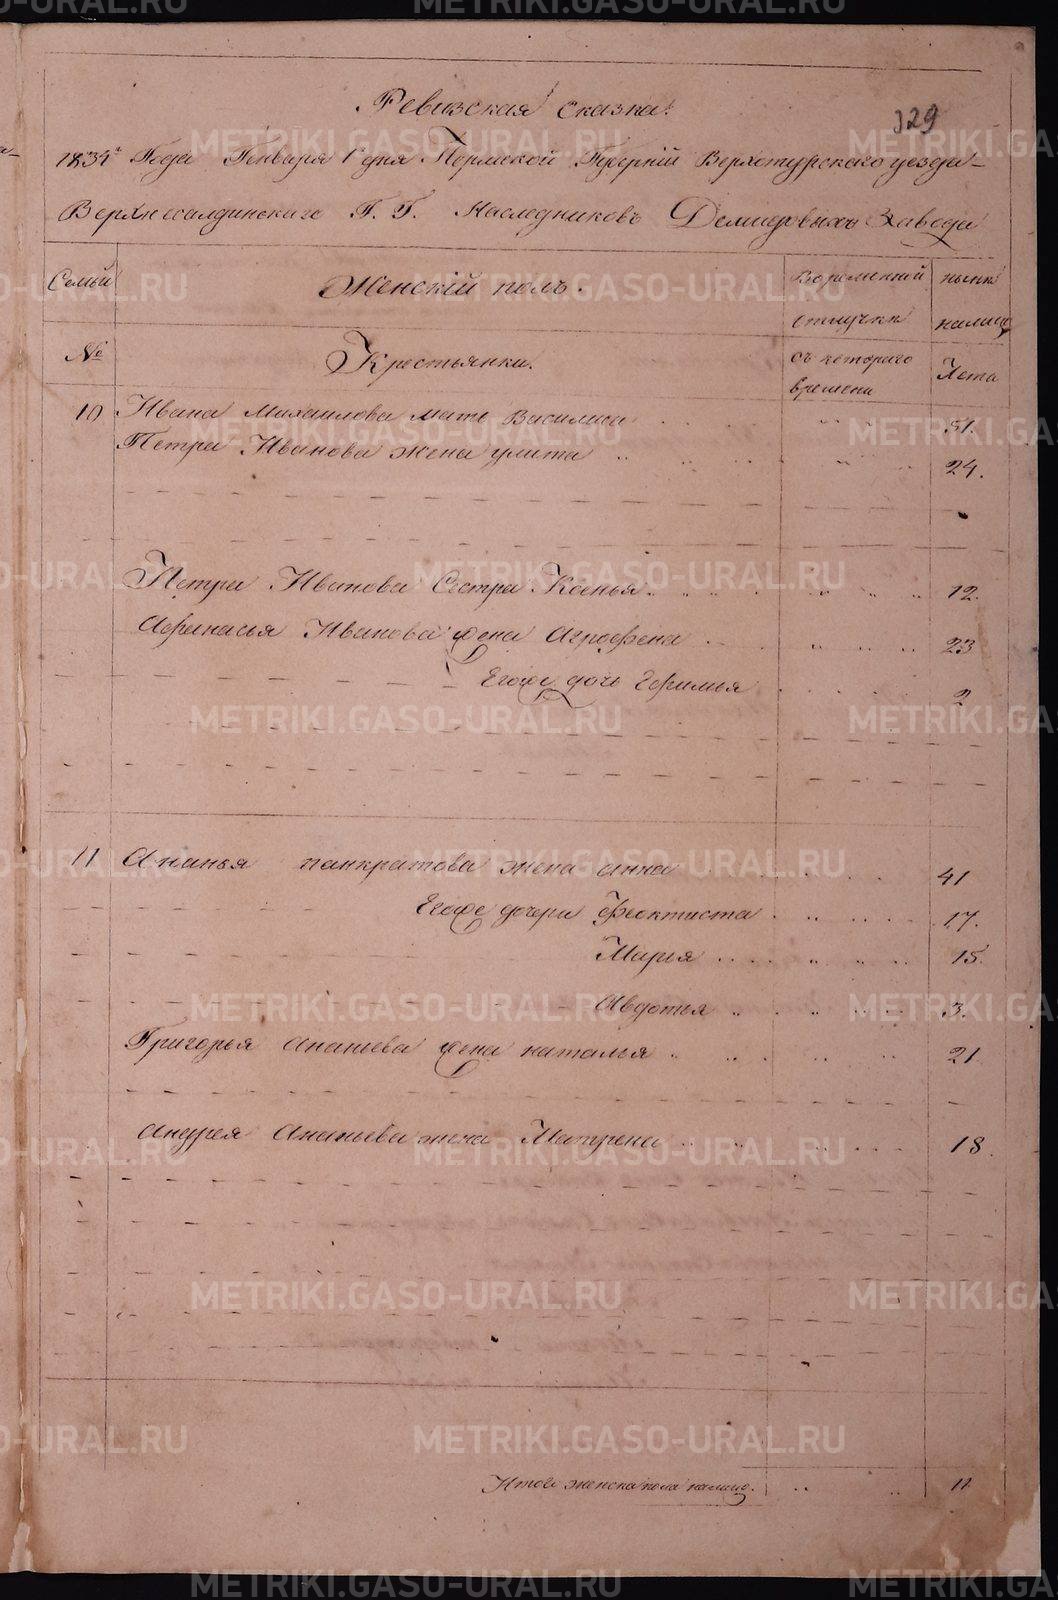 Ревизская сказка.
329
1834го Года Генваря 1го дня Пермской Губернiй Верхотурскаго уезда
Верхнесалдинскаго Г. Г. Наследниковъ Демидовыхъ Завода
Семьи Женскiй полъ. Во временной ныне
отлучке налицо
№ Крестьянки. Съ котораго Лета
времени
10 Ивана Михаилова мать Василиса 51.
Петра Иванова жена улита 24.
Петра Иванова Сестра Ксенья 12.
Афанасья Иванова жена Агрофена 23
Егоже дочь Ефимья 2
11 Ананья панкратова жена анна 41
Егоже дочери Феоктиста 17.
Марья 15.
Авдотья 3.
Григорья Ананьева жена наталья 21
андрея Ананьева жена Матрена 18.
Итого женска пола налицо. 11
METRIKI.GASO-URAL.RU